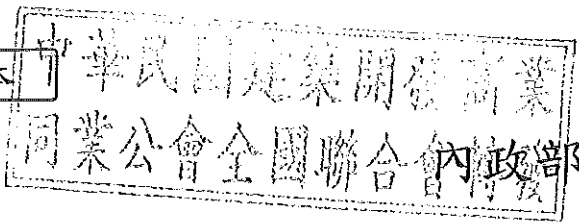 中華民國建築開發商業
同業公會全國聯合會
內政部
本